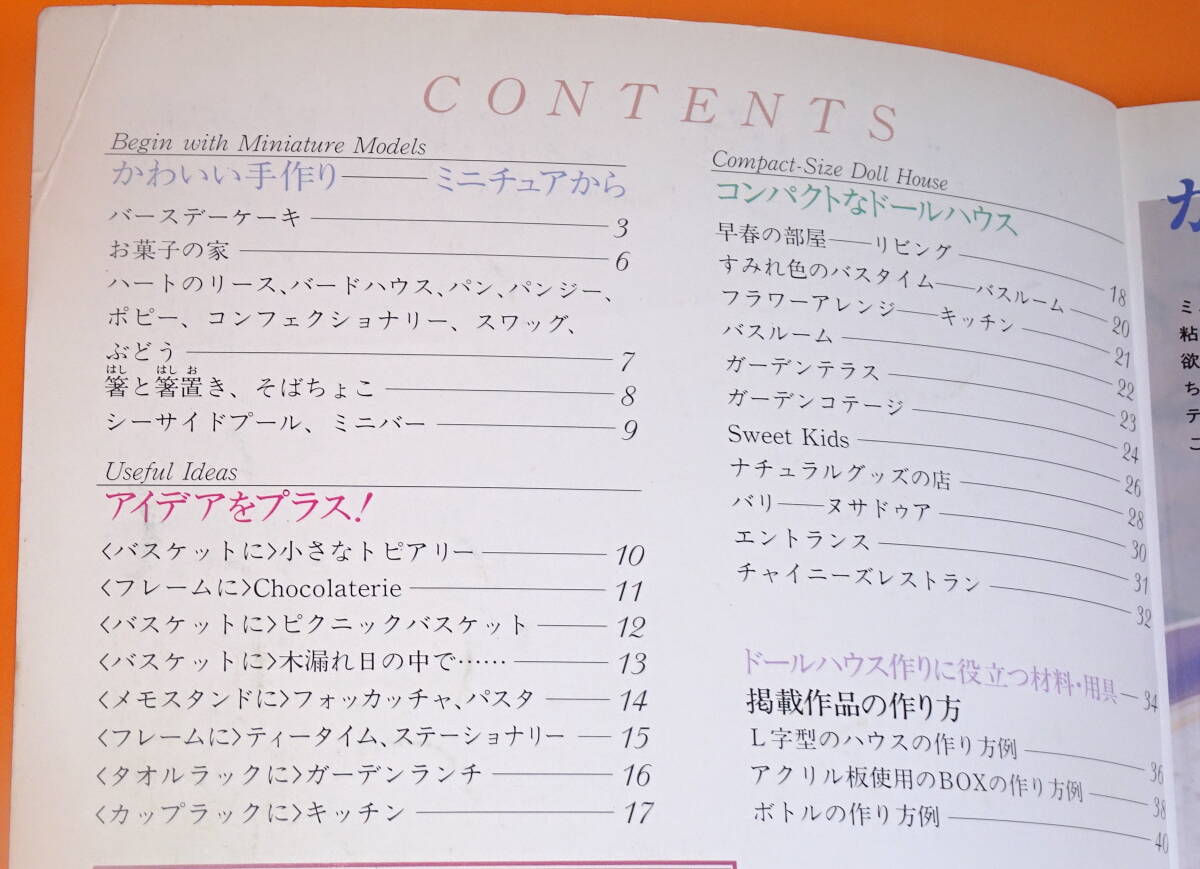 CONTENTS
Begin with Miniature Models
かわいい手作り――ミニチュアから
バースデーケーキ 3
お菓子の家 6
ハートのリース、バードハウス、パン、パンジー、
ポピー、コンフェクショナリー、スワッグ、
ぶどう 7
はし はし お
箸と箸置き、そばちょこ 8
シーサイドプール、ミニバー 9
Useful Ideas
アイデアをプラス!
〈バスケットに〉小さなトピアリー 10
〈フレームに〉Chocolaterie 11
〈バスケットに〉ピクニックバスケット 12
〈バスケットに〉木漏れ日の中で…… 13
〈メモスタンドに〉フォッカッチャ、パスタ 14
〈フレームに〉ティータイム、ステーショナリー 15
〈タオルラックに〉ガーデンランチ 16
〈カップラックに〉キッチン 17
Compact-Size Doll House
コンパクトなドールハウス
早春の部屋――リビング 18
すみれ色のバスタイム――バスルーム 20
フラワーアレンジ――キッチン 21
バスルーム 22
ガーデンテラス 23
ガーデンコテージ 24
Sweet Kids 26
ナチュラルグッズの店 28
バリ――ヌサドゥア 30
エントランス 31
チャイニーズレストラン 32
ドールハウス作りに役立つ材料・用具 34
掲載作品の作り方
L字型のハウスの作り方例 36
アクリル板使用のBOXの作り方例 38
ボトルの作り方例 40
ミ
粘
欲
ち
テ